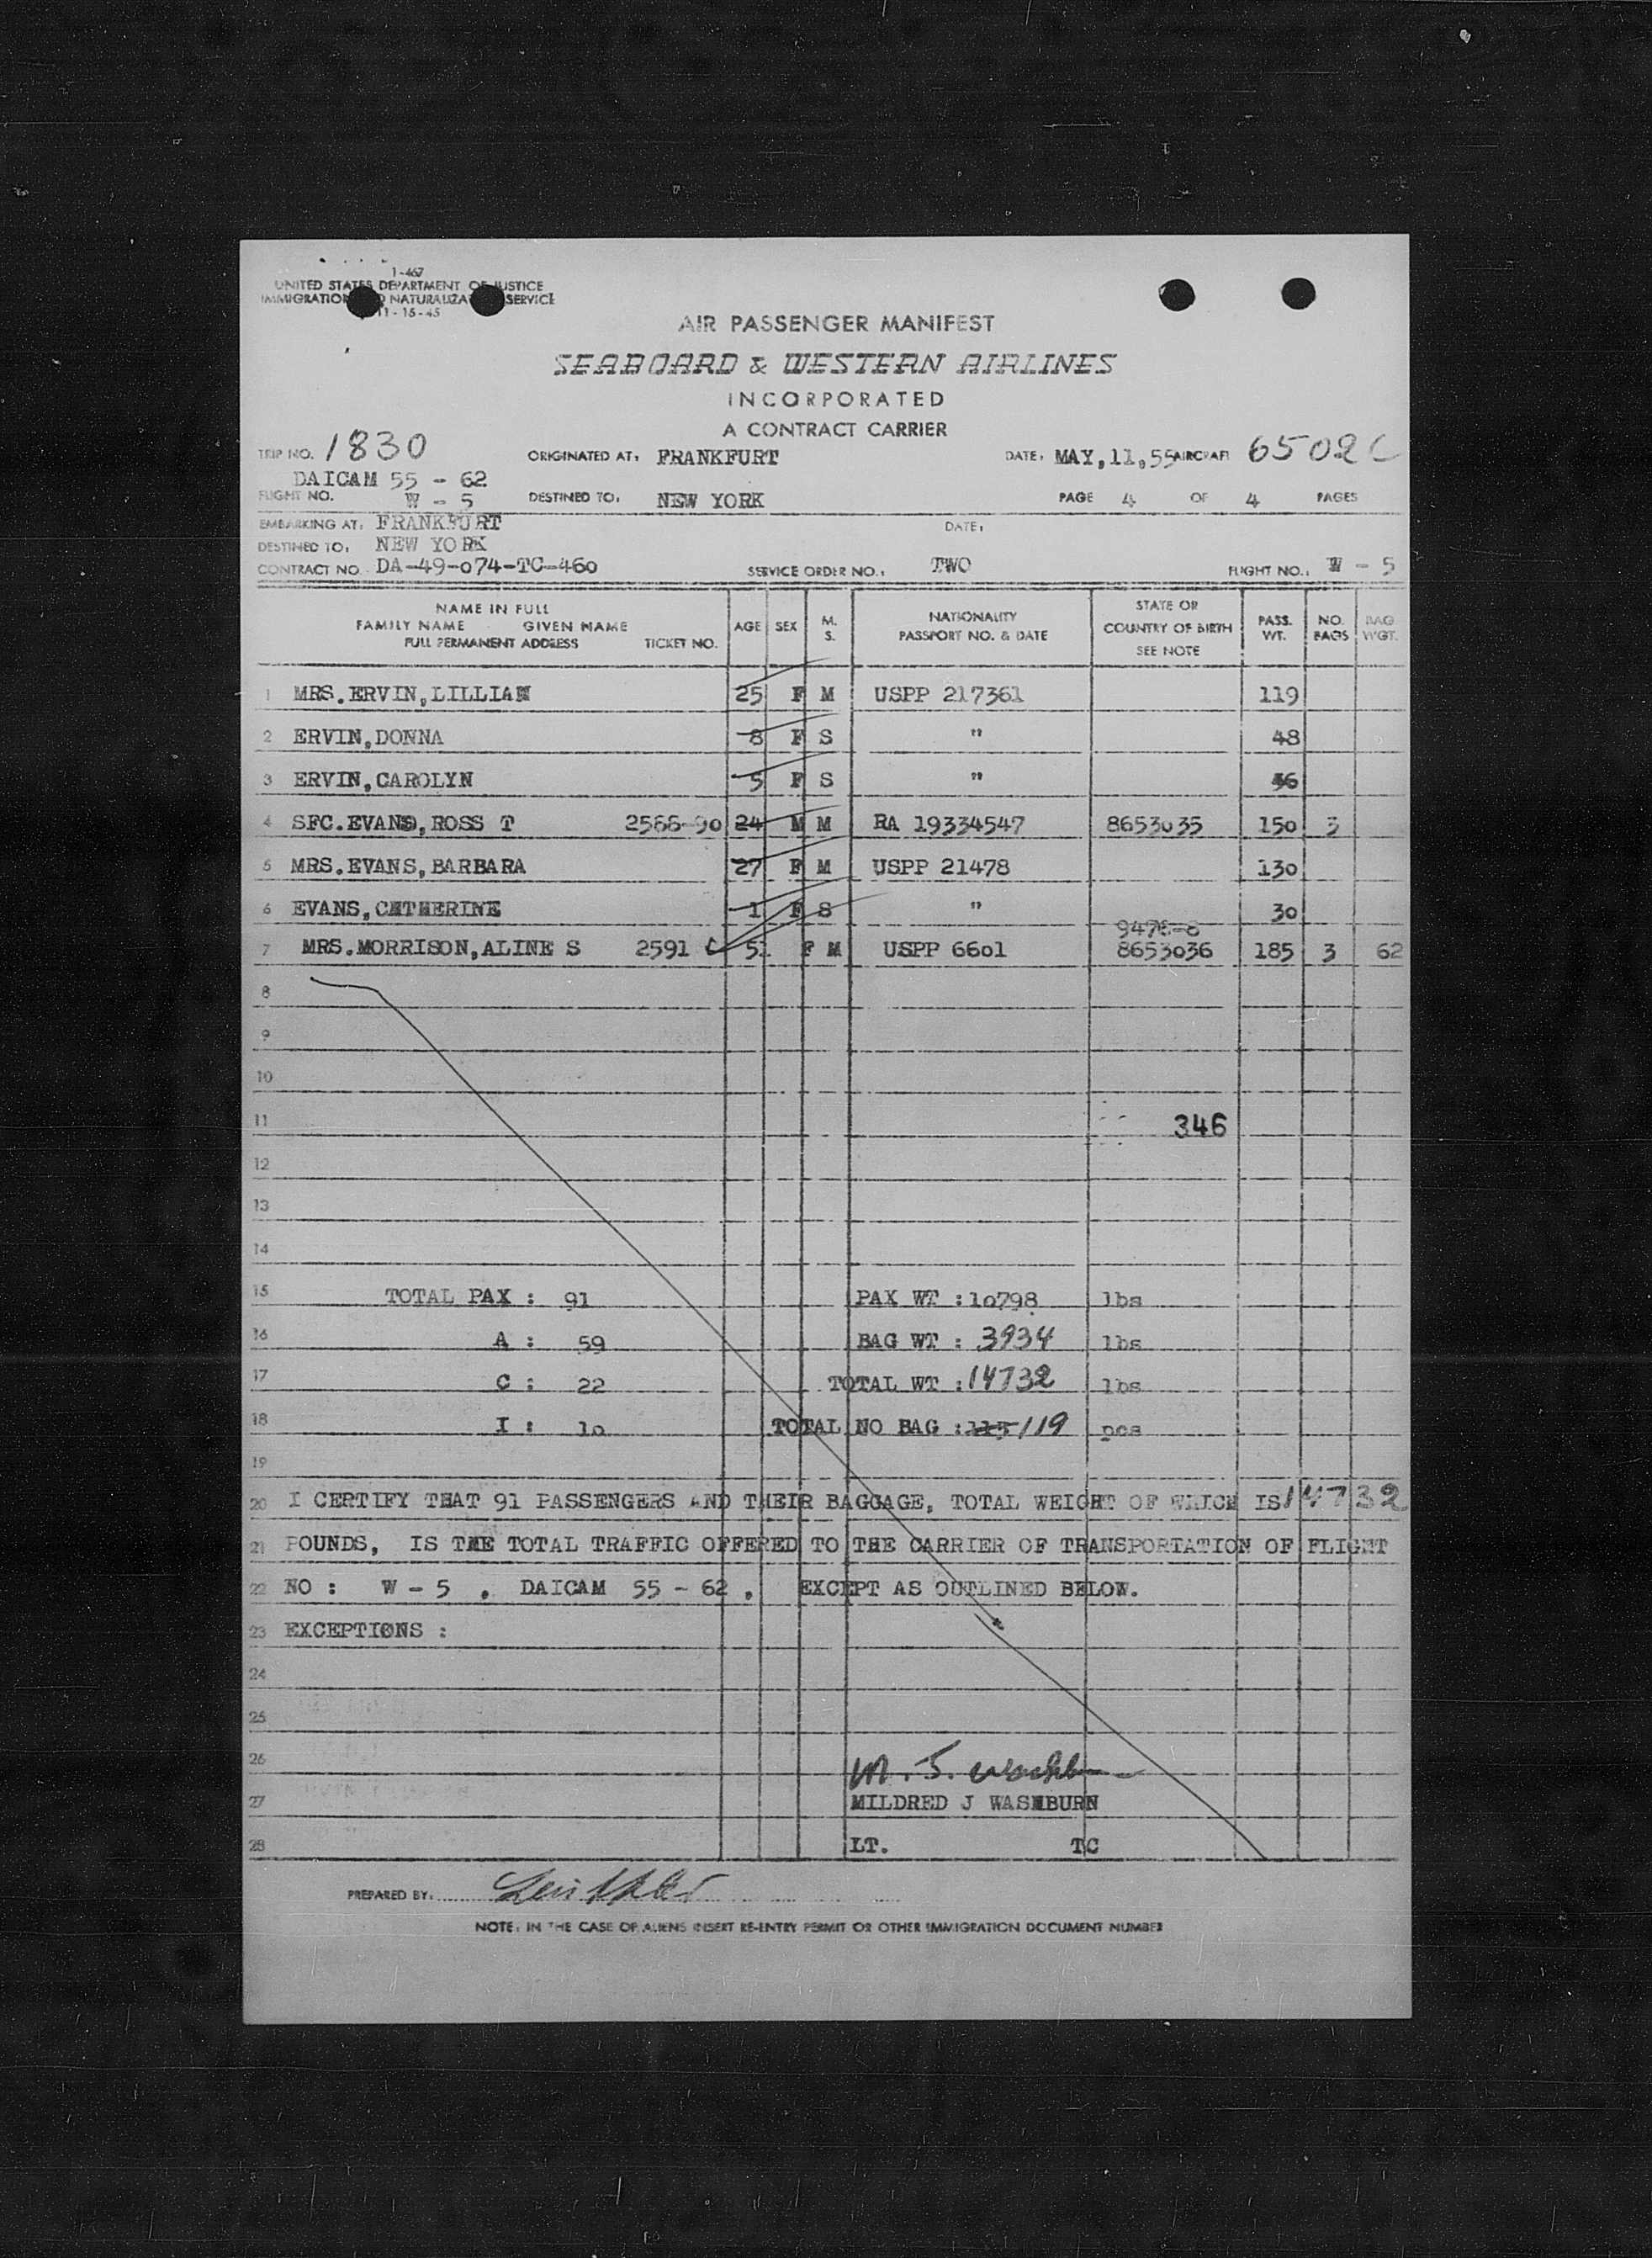 1-467
UNITED STATES DEPARTMENT OF JUSTICE
IMMIGRATION NATURALIZA SERVICE
11-15-45
AIR PASSENGER MANIFEST
SEABOARD & WESTERN AIRLINES
INCORPORATED
A CONTRACT CARRIER
TRIP NO. 1830 ORIGINATED AT: FRANKFURT DATE: MAY,11,55 AIRCRAFT 6502C
DAICAM 55 - 62
FLIGHT NO. W - 5 DESTINED TO: NEW YORK PAGE 4 OF 4 PAGES
EMBARKING AT: FRANKFURT DATE:
DESTINED TO: NEW YORK
CONTRACT NO. DA-49-074-TC-460 SERVICE ORDER NO.: TWO FLIGHT NO.: W - 5
NAME IN FULL
FAMILY NAME GIVEN NAME
FULL PERMANENT ADDRESS TICKET NO. AGE SEX M. S. NATIONALITY PASSPORT NO. & DATE STATE OR COUNTRY OF BIRTH SEE NOTE PASS. WT. NO. BAGS BAG WGT.
1 MRS.ERVIN,LILLIAN 25 F M USPP 217361 119
2 ERVIN,DONNA 8 F S " 48
3 ERVIN,CAROLYN 5 F S " 36
4 SFC.EVANS,ROSS T 2588-90 24 M M RA 19334547 8653035 150 3
5 MRS.EVANS,BARBARA 27 F M USPP 21478 130
6 EVANS,CATHERINE 1 F S " 30
9476-8
7 MRS.MORRISON,ALINE S 2591 C 51 F M USPP 6601 8653036 185 3 62
8
9
10
11 346
12
13
14
15 TOTAL PAX : 91 PAX WT :10798 lbs
16 A : 59 BAG WT : 3934 lbs
17 C : 22 TOTAL WT :14732 lbs
18 I : 10 TOTAL NO BAG :115/119 pcs
19
20 I CERTIFY THAT 91 PASSENGERS AND THEIR BAGGAGE, TOTAL WEIGHT OF WHICH IS 14732
21 POUNDS, IS THE TOTAL TRAFFIC OFFERED TO THE CARRIER OF TRANSPORTATION OF FLIGHT
22 NO : W - 5 , DAICAM 55 - 62 , EXCEPT AS OUTLINED BELOW.
23 EXCEPTIONS :
24
25
26 M. J. Washburn
27 MILDRED J WASHBURN
28 LT. TC
PREPARED BY:
NOTE: IN THE CASE OF ALIENS INSERT RE-ENTRY PERMIT OR OTHER IMMIGRATION DOCUMENT NUMBER